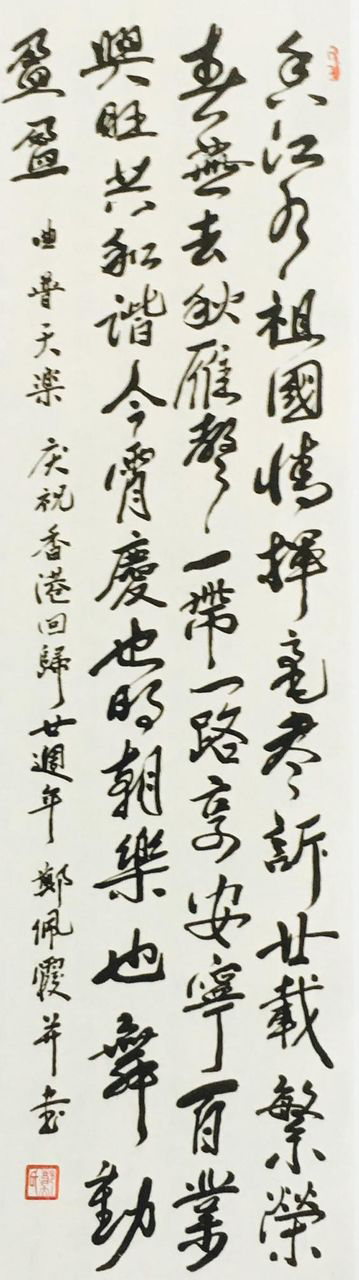 香江祖國情揮毫盡訴廿載繁榮
春燕去秋雁聲一帶一路享安寧百業
興旺共和諧今宵慶也明朝樂也舞動
盈盈
曲普天楽 庆祝香港回歸廿週年 鄭佩霞并書